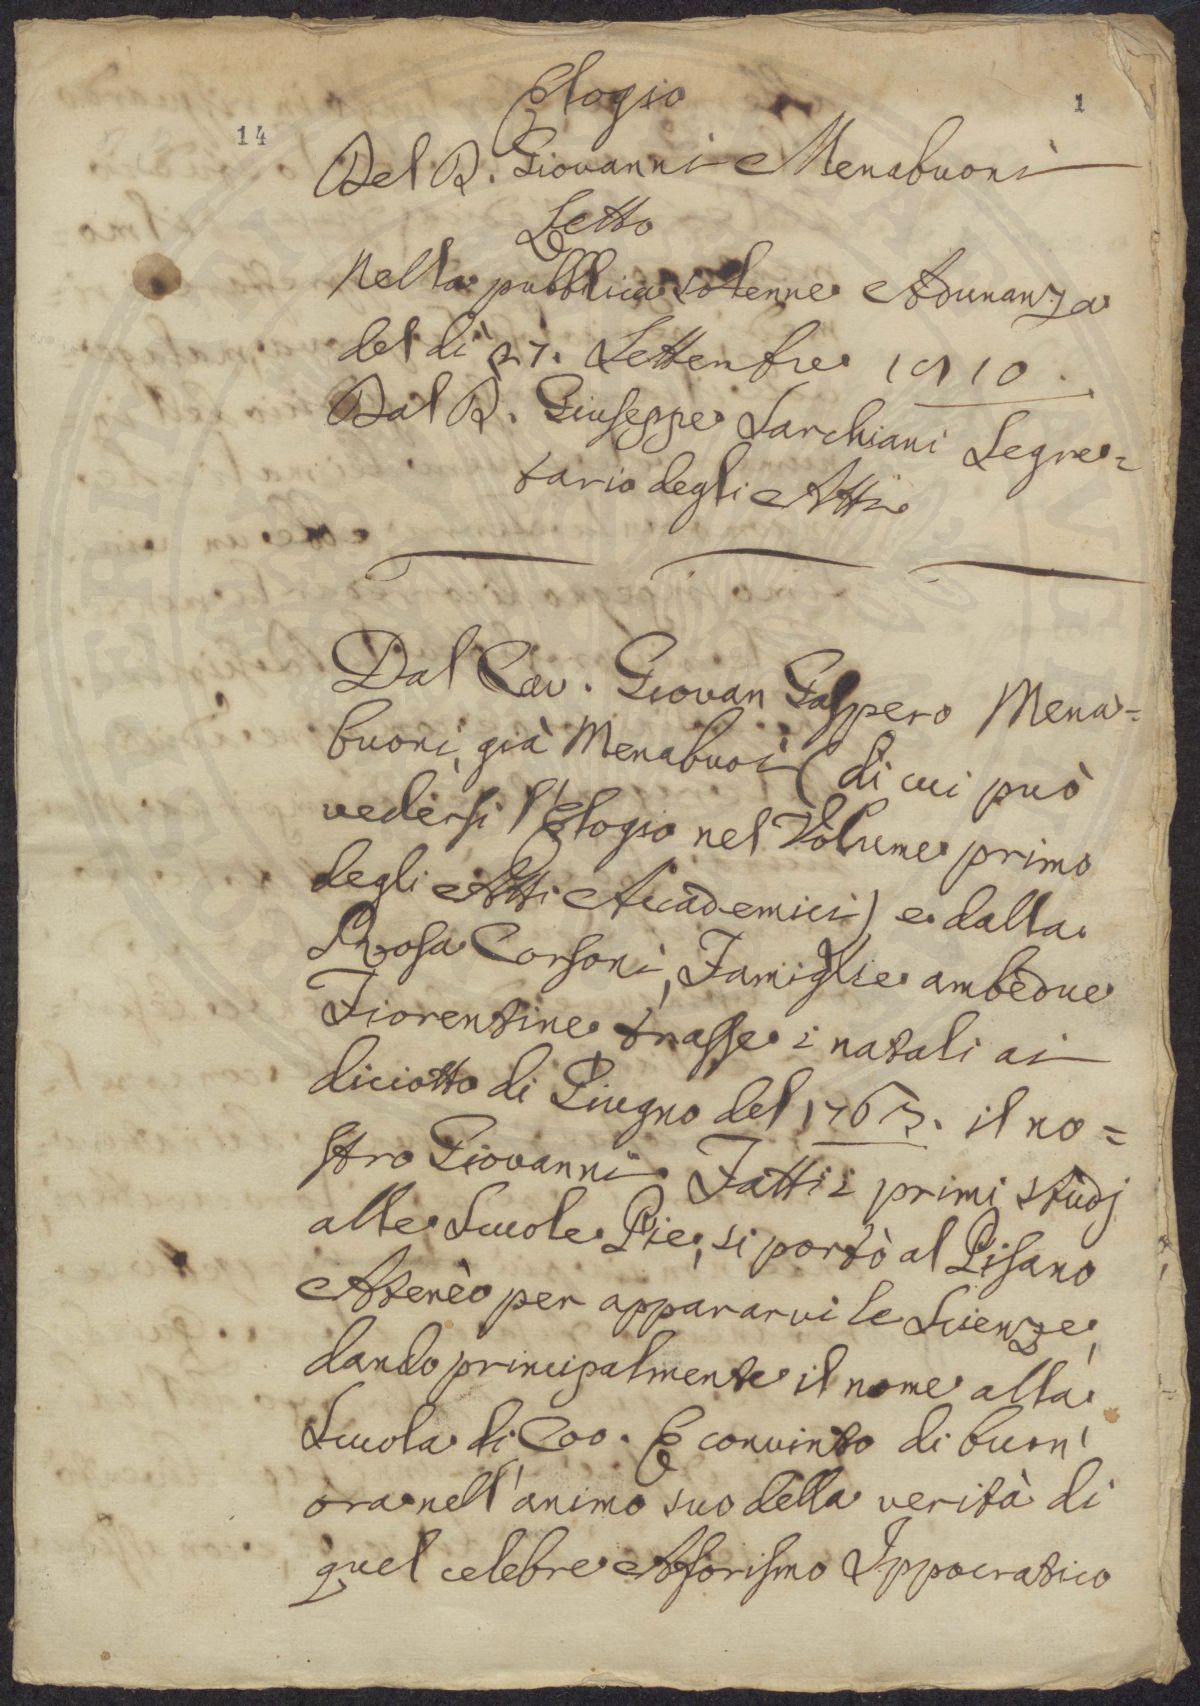 14
1
Elogio
Del D. Giovanni Menabuoni
Letto
Nella pubblica solenne Adunanza
del dì 27. Settembre 1810.
Dal D. Giuseppe Sarchiani Segre=
tario degli Atti
Dal Cav. Giovan Gaspero Mena=
buoni, già Menabuoi (di cui può
vedersi l'Elogio nel Volume primo
degli Atti Accademici) e dalla
Rosa Corsoni, Famiglie ambedue
Fiorentine trasse i natali ai
diciotto di Giugno del 1763. il no=
stro Giovanni. Fatti i primi studj
alle Scuole Pie, si portò al Pisano
Atenèo per appararvi le Scienze,
dando principalmente il nome alla
Scuola di Coo. E convinto di buon'
ora nell'animo suo della verità di
quel celebre Afforismo Ippocratico